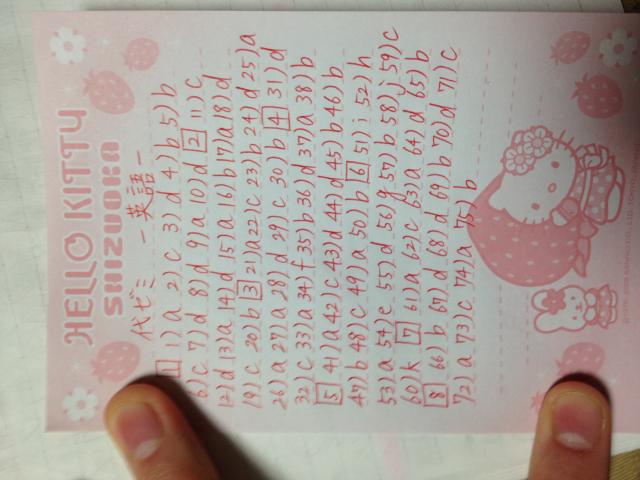 HELLO KITTY
SHIZUOKA
代ゼミ －英語－
1 1)a 2)c 3)d 4)b 5)b
6)c 7)d 8)d 9)a 10)d 2 11)c
12)d 13)a 14)d 15)a 16)b 17)a 18)d
19)c 20)b 3 21)a 22)c 23)b 24)d 25)a
26)a 27)a 28)d 29)c 30)b 4 31)d
32)c 33)a 34)f 35)b 36)d 37)a 38)b
5 41)a 42)c 43)d 44)d 45)b 46)b
47)b 48)c 49)a 50)b 6 51)i 52)h
53)a 54)e 55)d 56)g 57)b 58)j 59)c
60)k 7 61)a 62)c 63)a 64)d 65)b
8 66)b 67)d 68)d 69)b 70)d 71)c
72)a 73)c 74)a 75)b